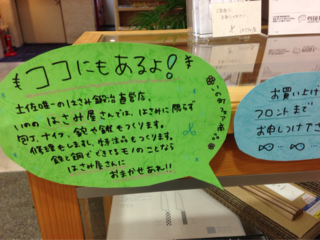 ココにもあるよ!
土佐唯一のはさみ鍛冶直営店、
いのの はさみ屋さんでは、はさみに限らず
包丁、ナイフ、鉈や鎌もつくります。
修理もしますし、特注品もつくります。
鉄と鋼でできてるモノのことなら
はさみ屋さんに
おまかせあれ!!
お買い上げ
フロントまで
お申しつけ下さ